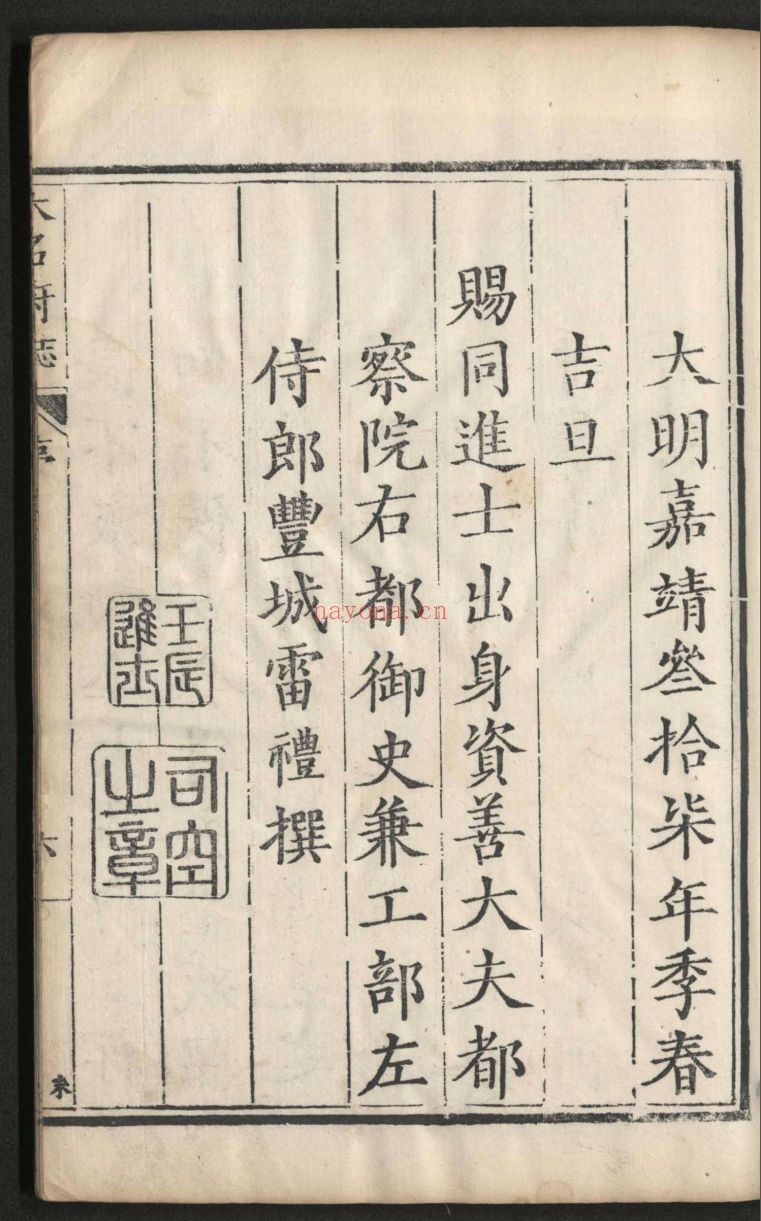 大明嘉靖叄拾柒年季春
吉旦
賜同進士出身資善大夫都
察院右都御史兼工部左
侍郎豐城雷禮撰
壬辰
進士
司空
之章
大名府誌
序
六
nayona.cn